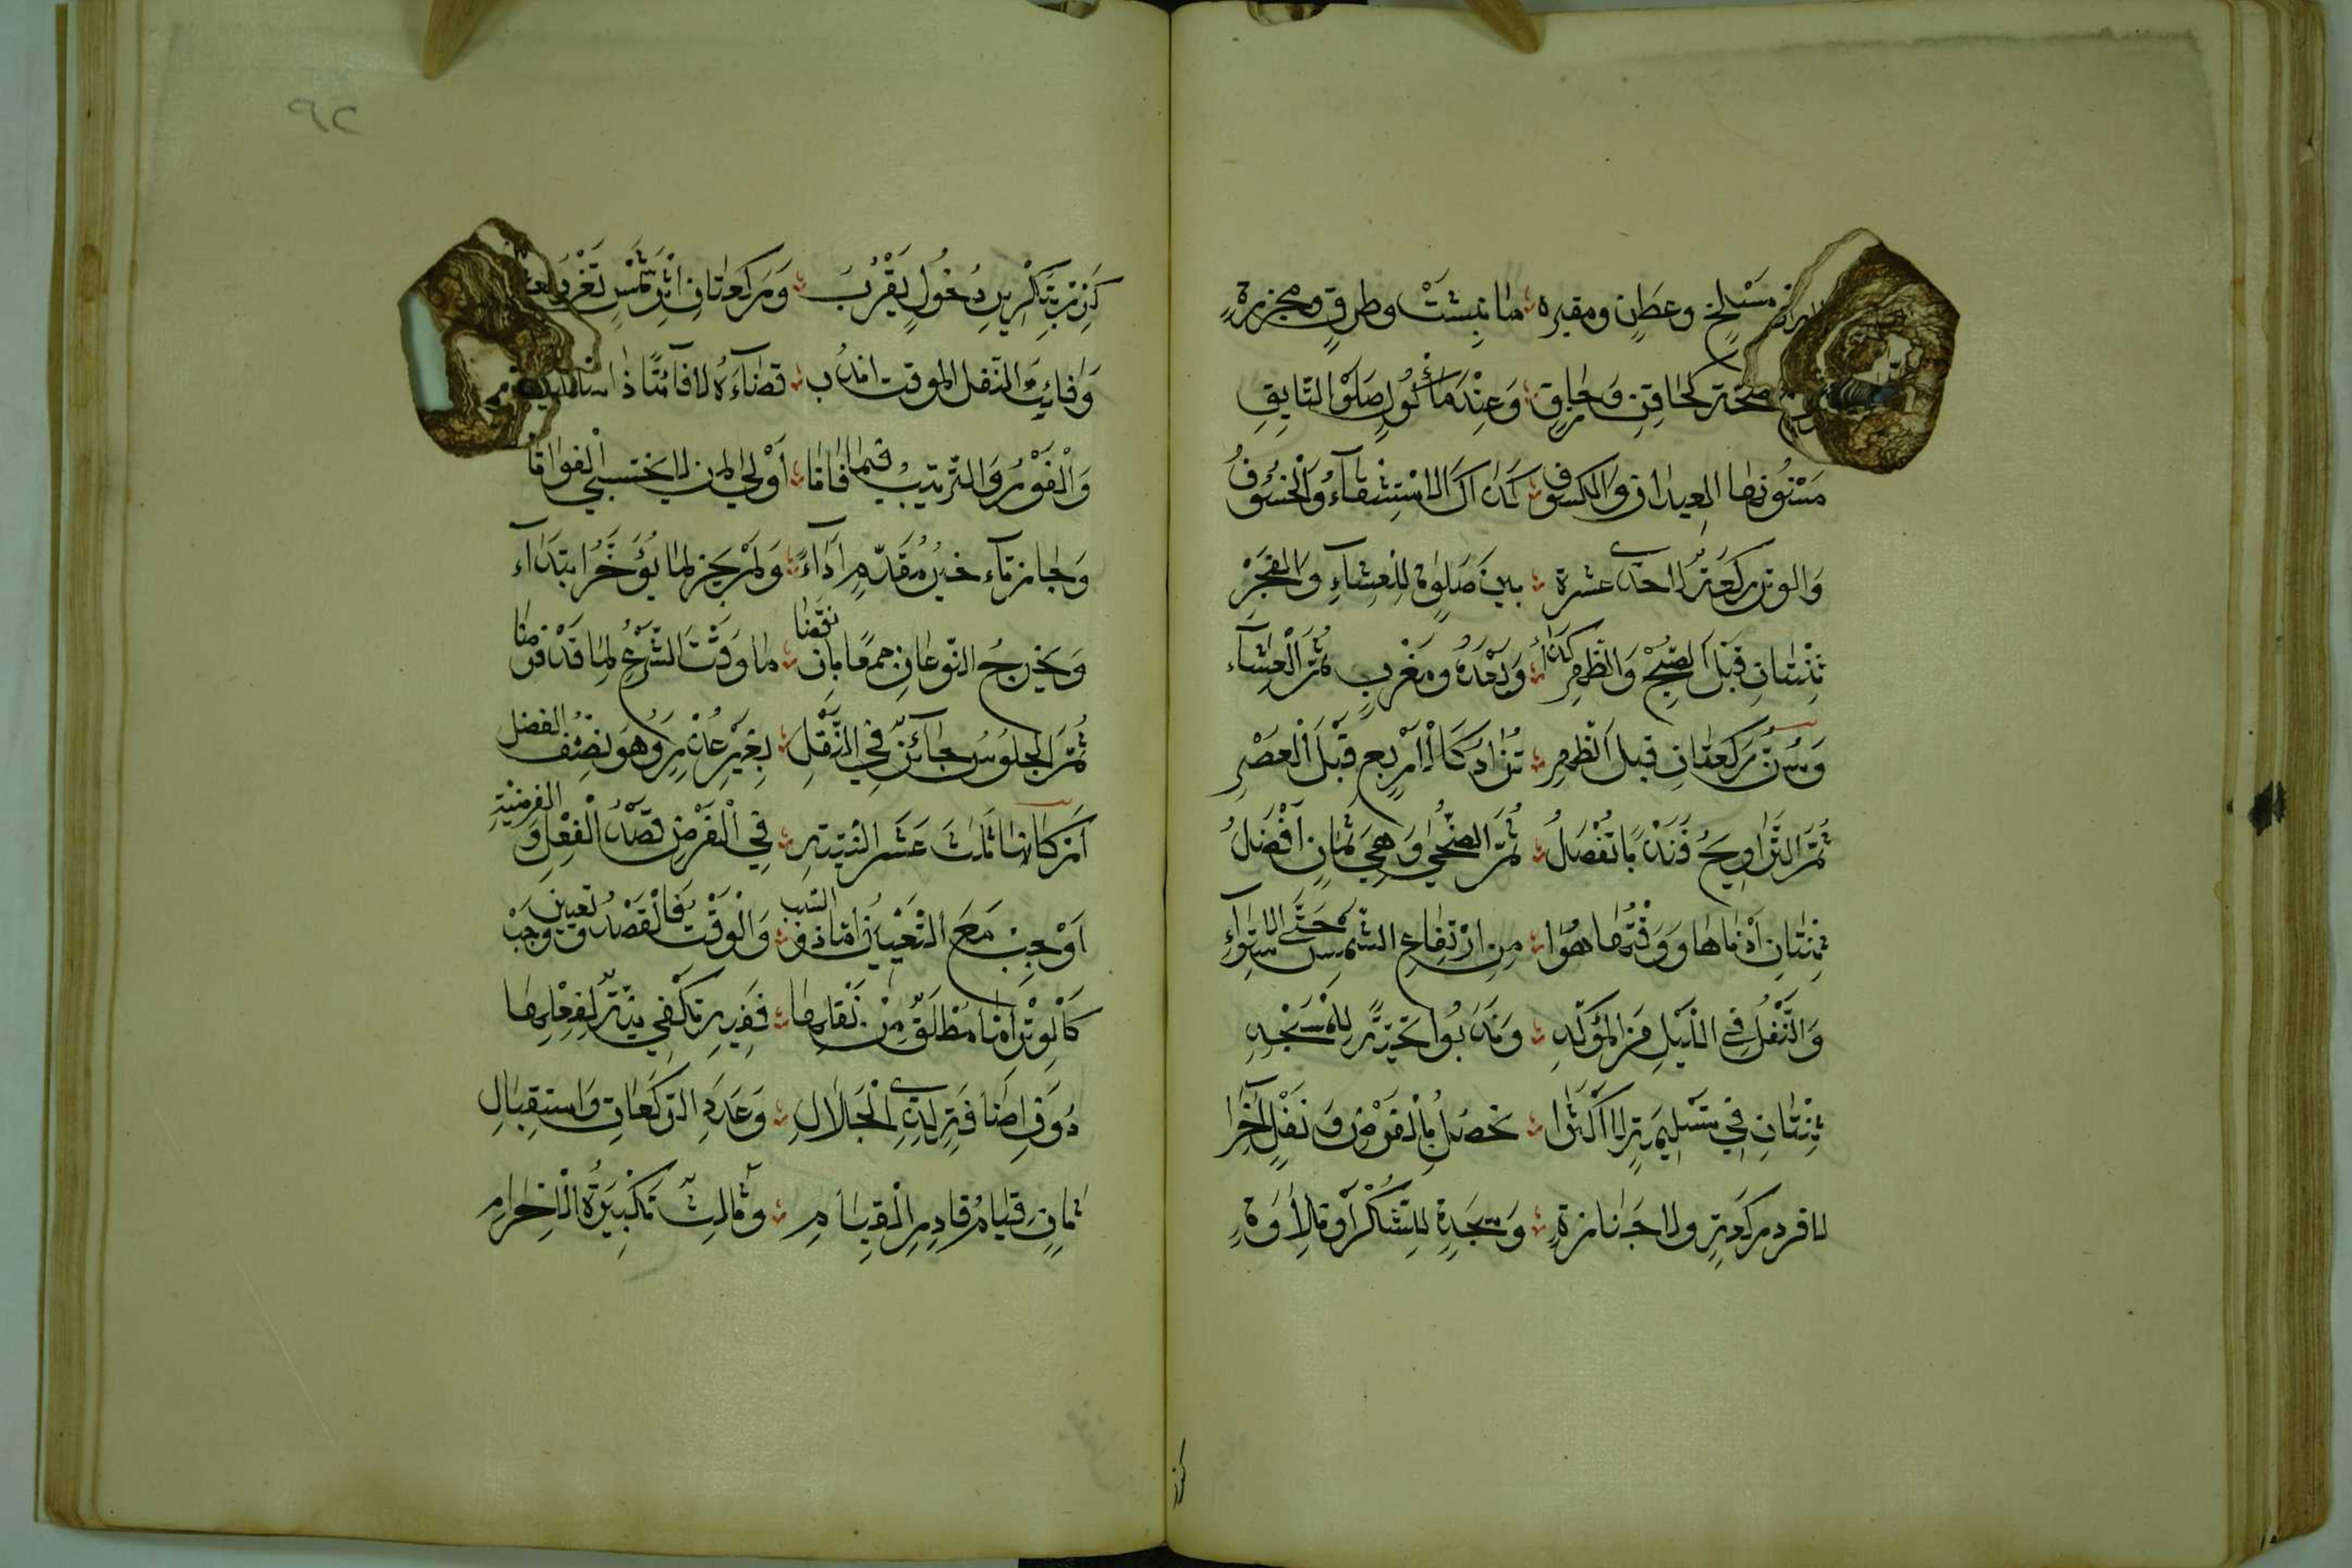 مسلخ وعطن ومقبره ما نبشت وطرق ومجزرة
صحة كحاقن وحازق وعند مأكول صلوة التايق
مسنونها العيدان والكسوف كذاك الاستسقاء والخسوف
والوتر ركعة لاحدى عشرة بين صلوة للعشاء والفجر
ثنتان قبل الصبح والظهر كذا وبعده ومغرب ثم العشاء
وسن ركعتان قبل الظهر تزاد كالاربع قبل العصر
ثم التراويح فندبا تفصل ثم الضحى وهي ثمان افضل
ثنتان أدناها ووقتها هوا من ارتفاع الشمس حتى الاستواء
والنفل في الليل من المؤكد وندبوا تحية للمسجد
ثنتان في تسليمة لا اكثرا تحصل بالفرض ونفل آخرا
لا فرد ركعة ولا جنازة وسجدة للشكر او تلاوة
كذ
٩٢
كرر بتكرير دخول يقرب وركعتان اثر شمس تغرب
وفايت النفل الموقت اندب قضاءه لا فائتا ذا
والفور والترتيب فيما فاتا أولى لمن لا يختشي الفواتا
وجاز تاخير مقدم أداء ولم يجز لما يؤخر ابتداء
ويخرج النوعان جمعا بانقضا ما وقت الشرع لما قد فرضا
ثم الجلوس جائز في النفل بغير عذر وهو نصف الفضل
اركانها ثلاث عشر النية في الفرض قصد الفعل والفرضية
أوجب مع التعيين أما ذو السبب والوقت فالقصد وتعيين وجب
كالوتر أما مطلق من نفلها ففيه تكفي نية لفعلها
دون إضافة لذي الجلال وعدد الركعات واستقبال
ثان قيام قادر القيام وثالث تكبيرة الاحرام